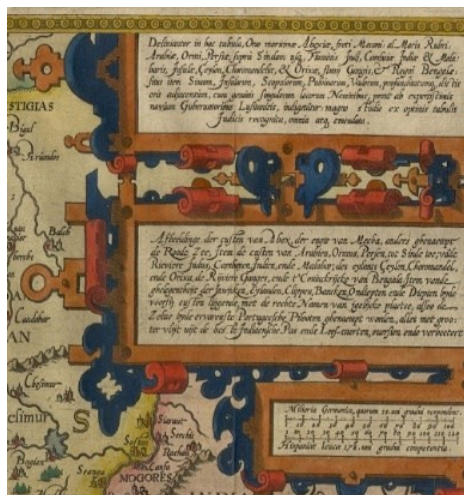 Delineantur in hac tabula, Orae maritimae Abexiae, freti Mecani: al. Maris Rubri:
Arabiae, Ormi, Persiae, supra Sindam usq, Fluminis Indi, Cambaiae Indiae & Mala-
baris, Insulae, Ceylon, Choromandeliae, & Orixae, fluvij Gangis, & Regni Bengalae:
situs item Sinuum, Insularum, Scopulorum, Pulvinorum, Vadorum, profunditatumq, dictis
oris adjacentium, cum genuinis singulorum locorum Nominibus, prout ab expertissimis
navium Gubernatoribus Lusitanicis, indigitantur: magno studio ex optimis tabulis
Indicis recognita, omnia atq, emendata.
STIGIAS
Afbeeldinge der custen van Abex, der engte van Mecha, anders ghenaempt
de Roode Zee, Item de custen van Arabien, Ormus, Persien, tot Sinde toe, valle
Rieviere Indus, Cambeien, Indien, ende Malabar, des eylants Ceylon, Choromandel,
ende Orixa, de Riviere Ganges, ende t'Coninckrijcke van Bengala. Item vande
gheleghentheyt der Inwijcken, Eylanden, Clippen, Bancken, Ondiepten ende Diepten by de
voersz custen liggende, met de rechte Namen van ijgelijcke plaetse, also de
Zelve by de ervarenste Portugeesche Piloten ghenaempt worden, alles met groo-
ter vlijt uijt de beste Indiaensche Pas ende Lees-caerten, oversien ende verbeetert
Balch
AN
simur
S
MOGORES
INDIA
Miliaria Germanica, quorum 15. uni gradui respondent.
Hispanicae leucae 17½. uni gradui competentes.